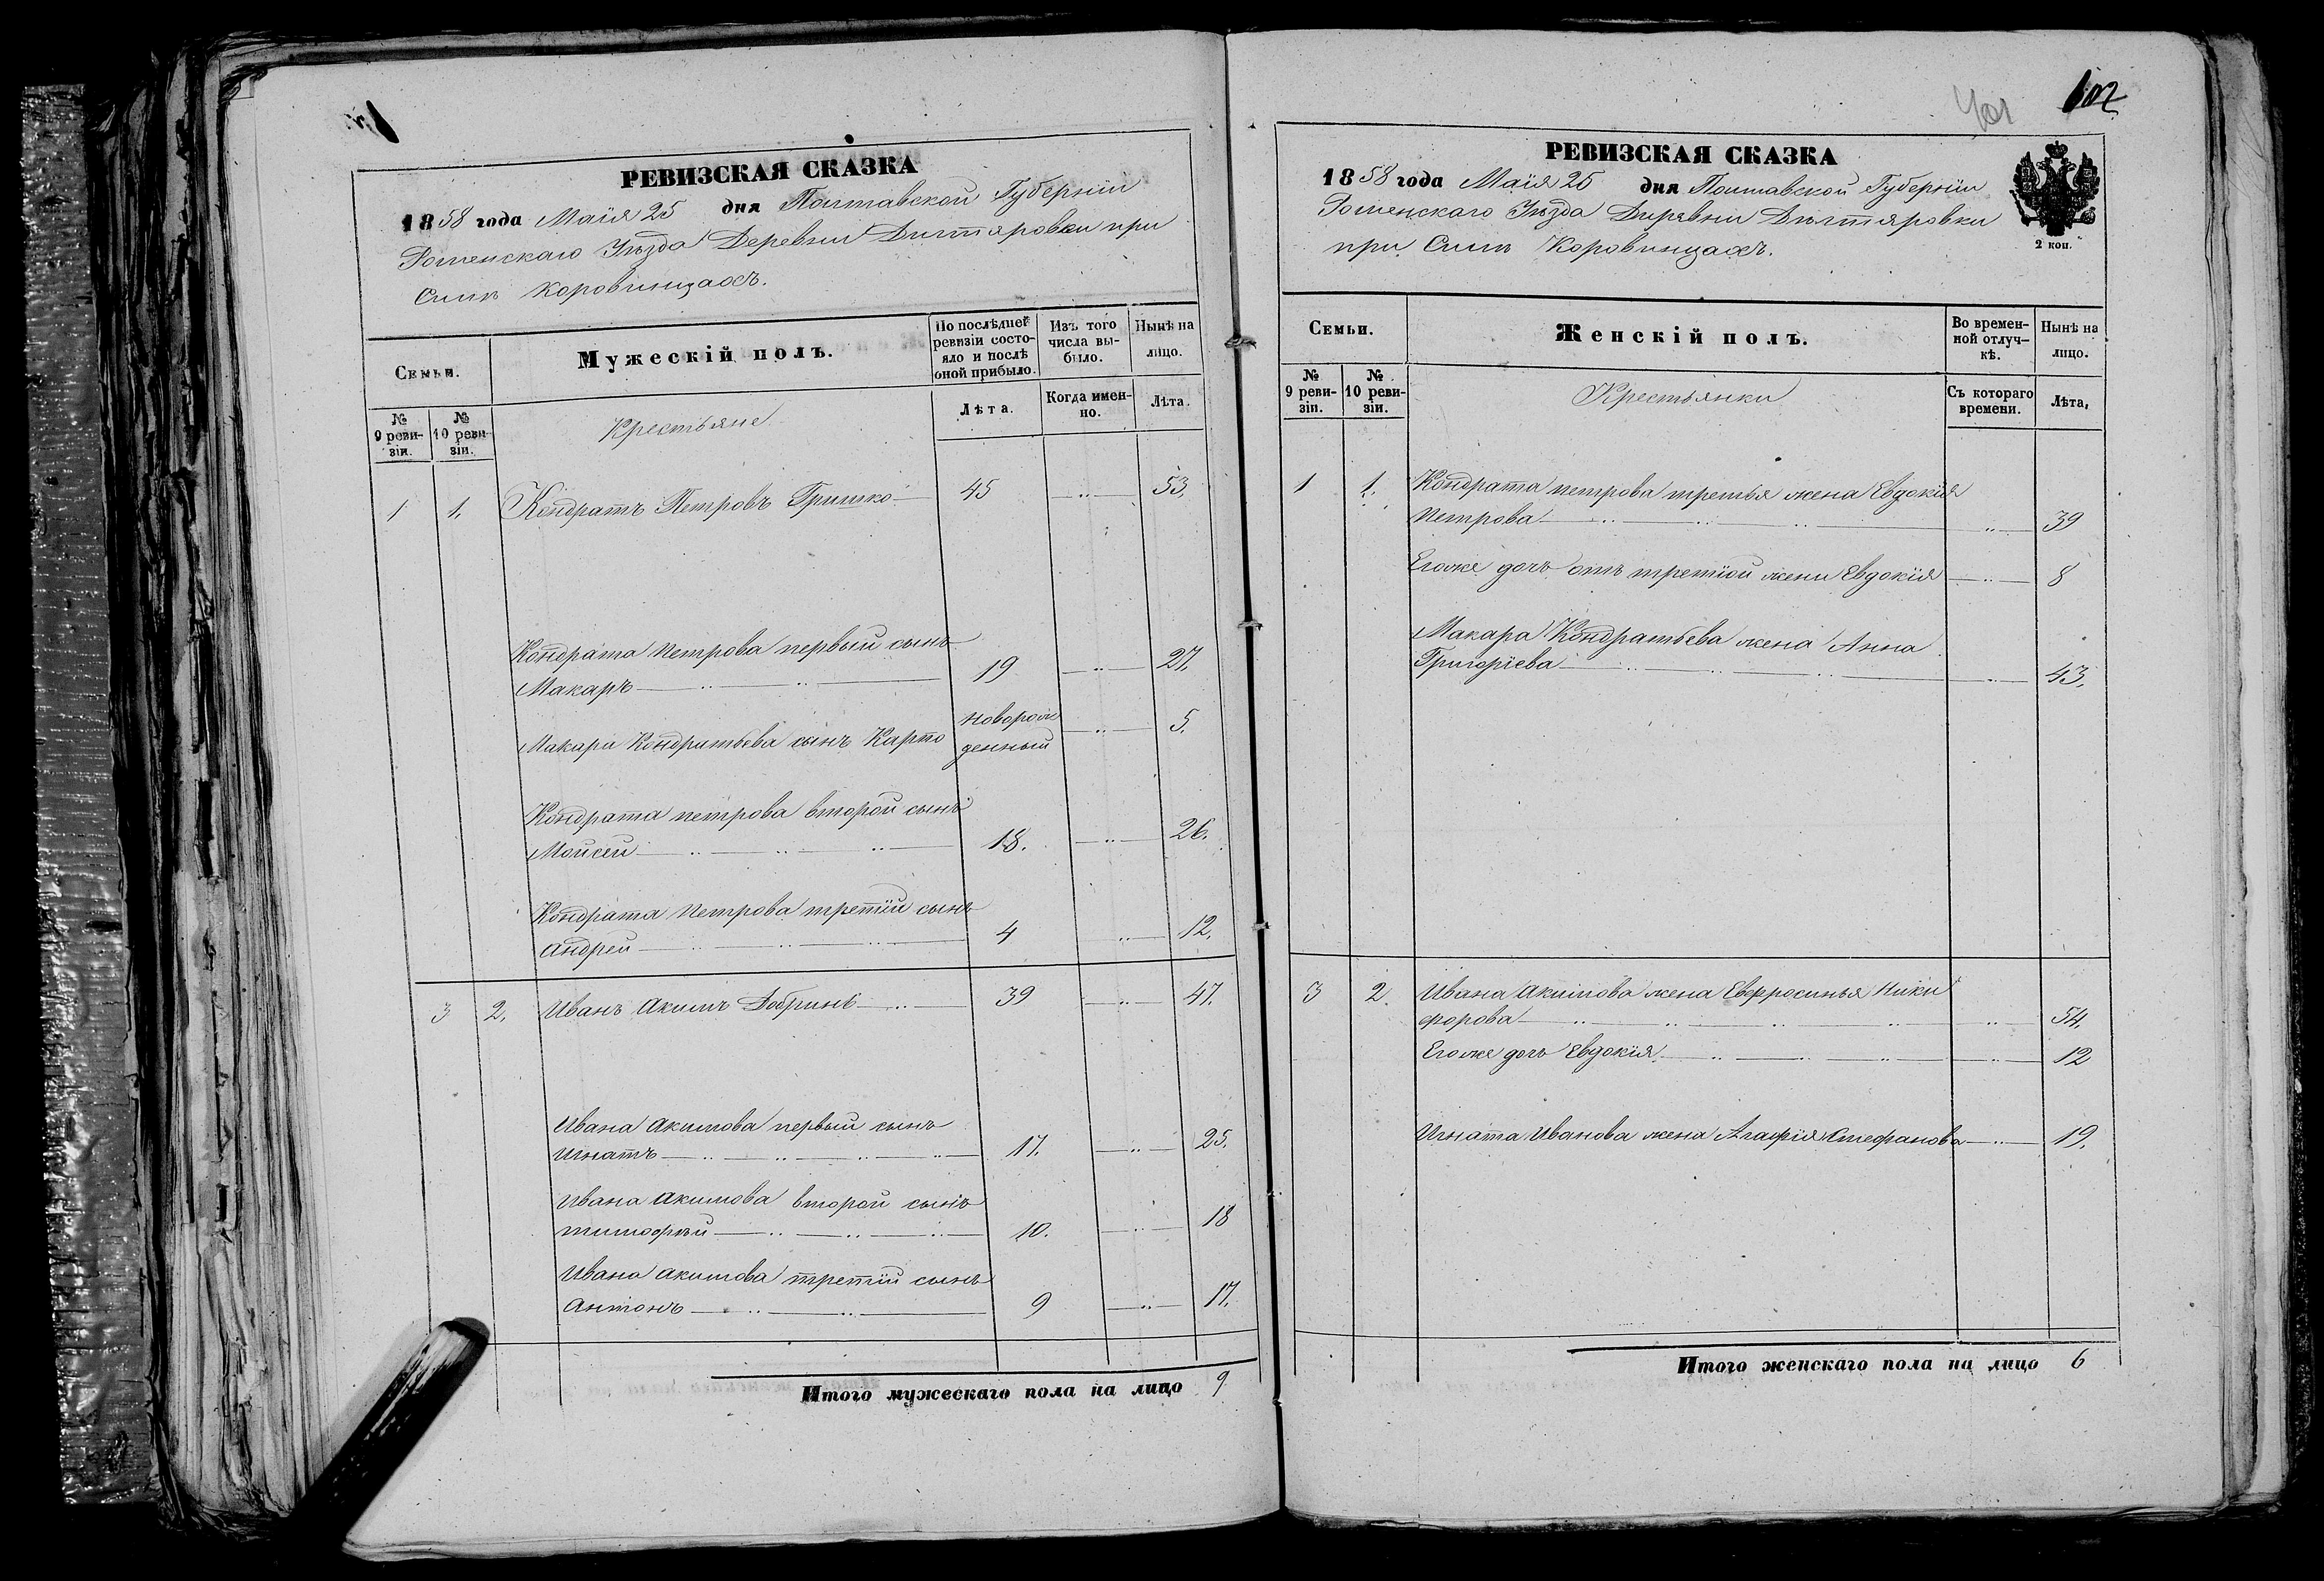 РЕВИЗСКАЯ СКАЗКА
1858 года Маія 25 дня Полтавской Губерніи
Роменскаго Уѣзда Деревни Дигтяровки при
Сели Коровинцахъ.
Семьи.
Мужескій полъ.
По послѣдней ревизіи состояло и послѣ оной прибыло.
Изъ того числа выбыло.
Нынѣ на лицо.
№ 9 ревизіи.
№ 10 ревизіи.
Крестьяне
Лѣта.
Когда именно.
Лѣта.
1 1. Кондратъ Петровъ Гришко 45 53.
Кондрата Петрова первый сынъ
Макаръ 19 27.
Макара Кондратьева сынъ Карпо новорож
денный 5.
Кондрата петрова второй сынъ
Мойсей 18. 26.
Кондрата Петрова третій сынъ
Андрей 4 12.
3 2. Иванъ Акимъ Добринь 39 47.
Ивана Акимова первый сынъ
Игнатъ 17. 25.
Ивана Акимова второй сынъ
тимофѣй 10. 18
Ивана Акимова третій сынъ
Антонъ 9 17.
Итого мужескаго пола на лицо 9
602
РЕВИЗСКАЯ СКАЗКА
1858 года Маія 25 дня Полтавской Губерніи
Роменскаго Уѣзда Деревни Дѣгтяровки
при Сели Коровинцахъ.
2 коп.
Семьи.
Женскій полъ.
Во временной отлучкѣ.
Нынѣ на лицо.
№ 9 ревизіи.
№ 10 ревизіи.
Крестьянки
Съ котораго времени.
Лѣта,
1 1. Кондрата петрова третья жена Евдокія
Петрова 39
Егоже дочь отъ третіой жени Евдокія 8
Макара Кондратьева жена Анна
Григоріева 43.
3 2. Ивана Акимова жена Евфросинья Ники
форова 54.
Егоже дочь Евдокія 12
Игната Иванова жена Агафія Стефанова 19.
Итого женскаго пола на лицо 6